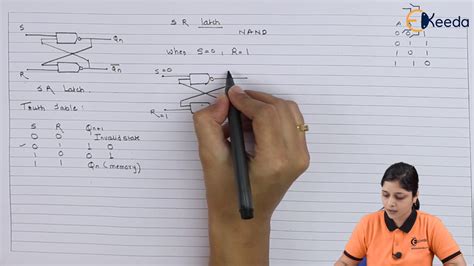 S R latch
NAND
When S=0, R=1
S
Qn
R
Qn
S=0
R=1
S.R Latch.
Truth Table:
S R Qn+1
0 0 Invalid state
0 1 1 0
1 0 0 1
1 1 Qn (memory)
EKeeda
0 0 1
0 1 1
1 0 1
1 1 0